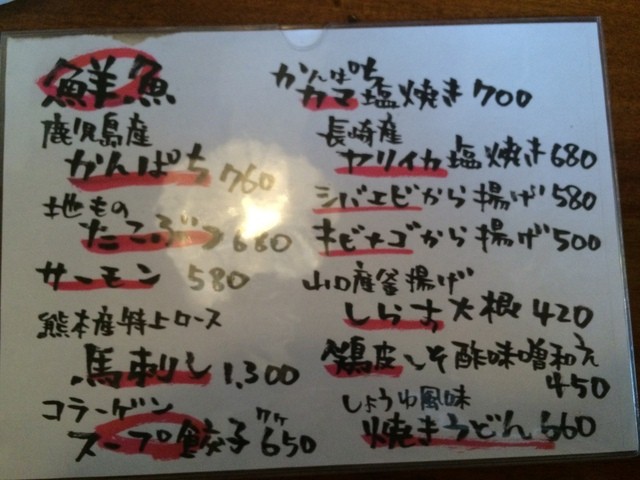 鮮魚
鹿児島産
かんぱち 760
地もの
たこぶつ 680
サーモン 580
熊本産特上ロース
馬刺し 1,300
コラーゲン
スープ餃子 7ヶ 650
かんぱち
カマ塩焼き 700
長崎産
ヤリイカ塩焼き 680
シバエビから揚げ 580
キビナゴから揚げ 500
山口産釜揚げ
しらす大根 420
鶏皮しそ酢味噌和え
450
しょうゆ風味
焼きうどん 660